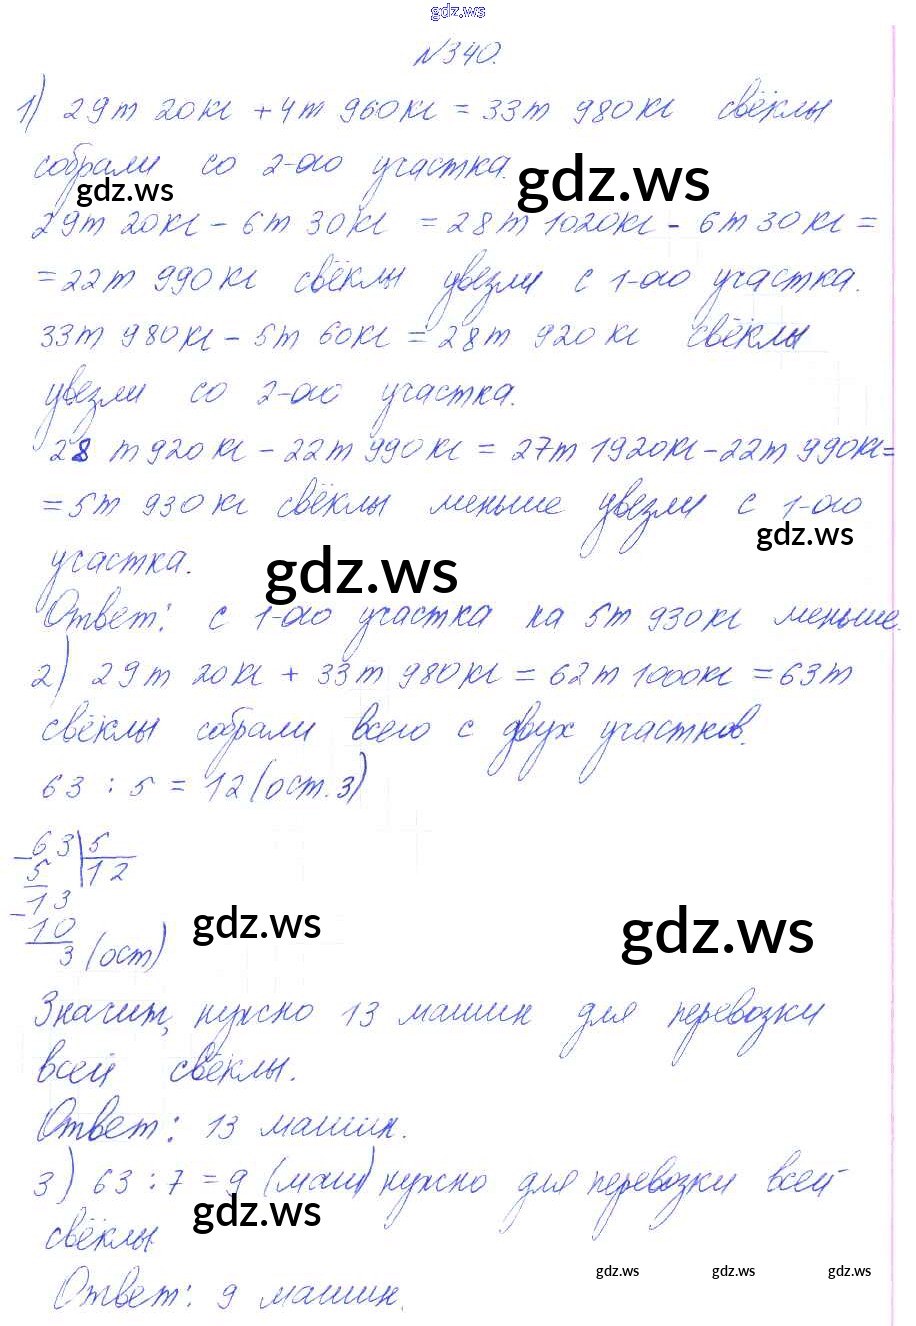 gdz.ws
№340.
1) 29т 20кг + 4т 960кг = 33т 980кг свёклы
собрали со 2-го участка.
gdz.ws gdz.ws
29т 20кг - 6т 30кг = 28т 1020кг - 6т 30кг =
= 22т 990кг свёклы увезли с 1-го участка.
33т 980кг - 5т 60кг = 28т 920кг свёклы
увезли со 2-го участка.
28т 920кг - 22т 990кг = 27т 1920кг - 22т 990кг =
= 5т 930кг свёклы меньше увезли с 1-го
gdz.ws
участка.
gdz.ws
Ответ: с 1-го участка на 5т 930кг меньше.
2) 29т 20кг + 33т 980кг = 62т 1000кг = 63т
свёклы собрали всего с двух участков.
63 : 5 = 12 (ост. 3)
- 63 | 5
5 12
- 13
10
3 (ост)
gdz.ws gdz.ws
Значит, нужно 13 машин для перевозки
всей свёклы.
Ответ: 13 машин.
3) 63 : 7 = 9 (маш) нужно для перевозки всей
gdz.ws
свёклы.
gdz.ws gdz.ws gdz.ws
Ответ: 9 машин.